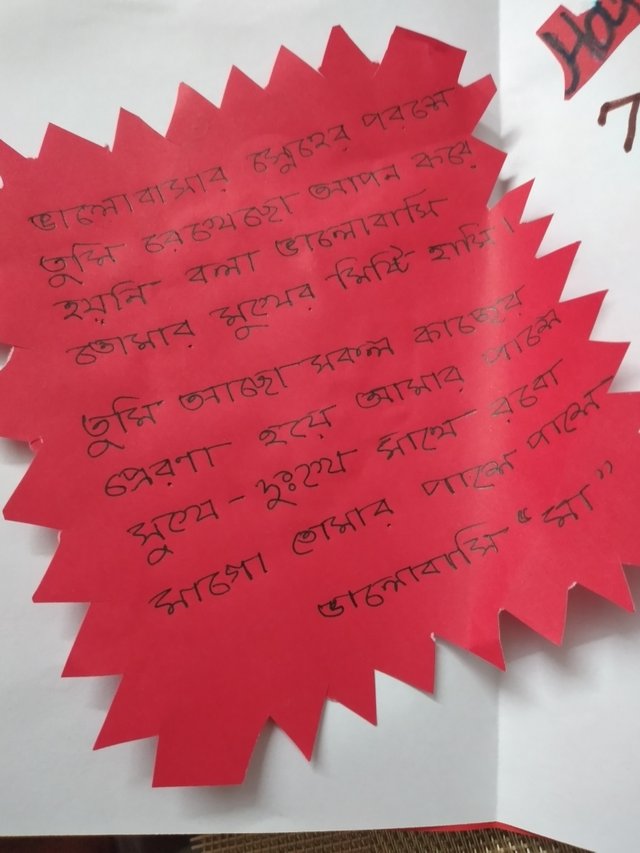 ভালোবাসার স্নেহের পরশে
তুমি রেখেছো আপন করে
হয়নি বলা ভালোবাসি
তোমার মুখের মিষ্টি হাসি।
তুমি আছো সকল কাজের
প্রেরণা হয়ে আমার পাশে
সুখে - দুঃখে সাথে রবো
মাগো তোমার পাশে পাশে
ভালোবাসি "মা"